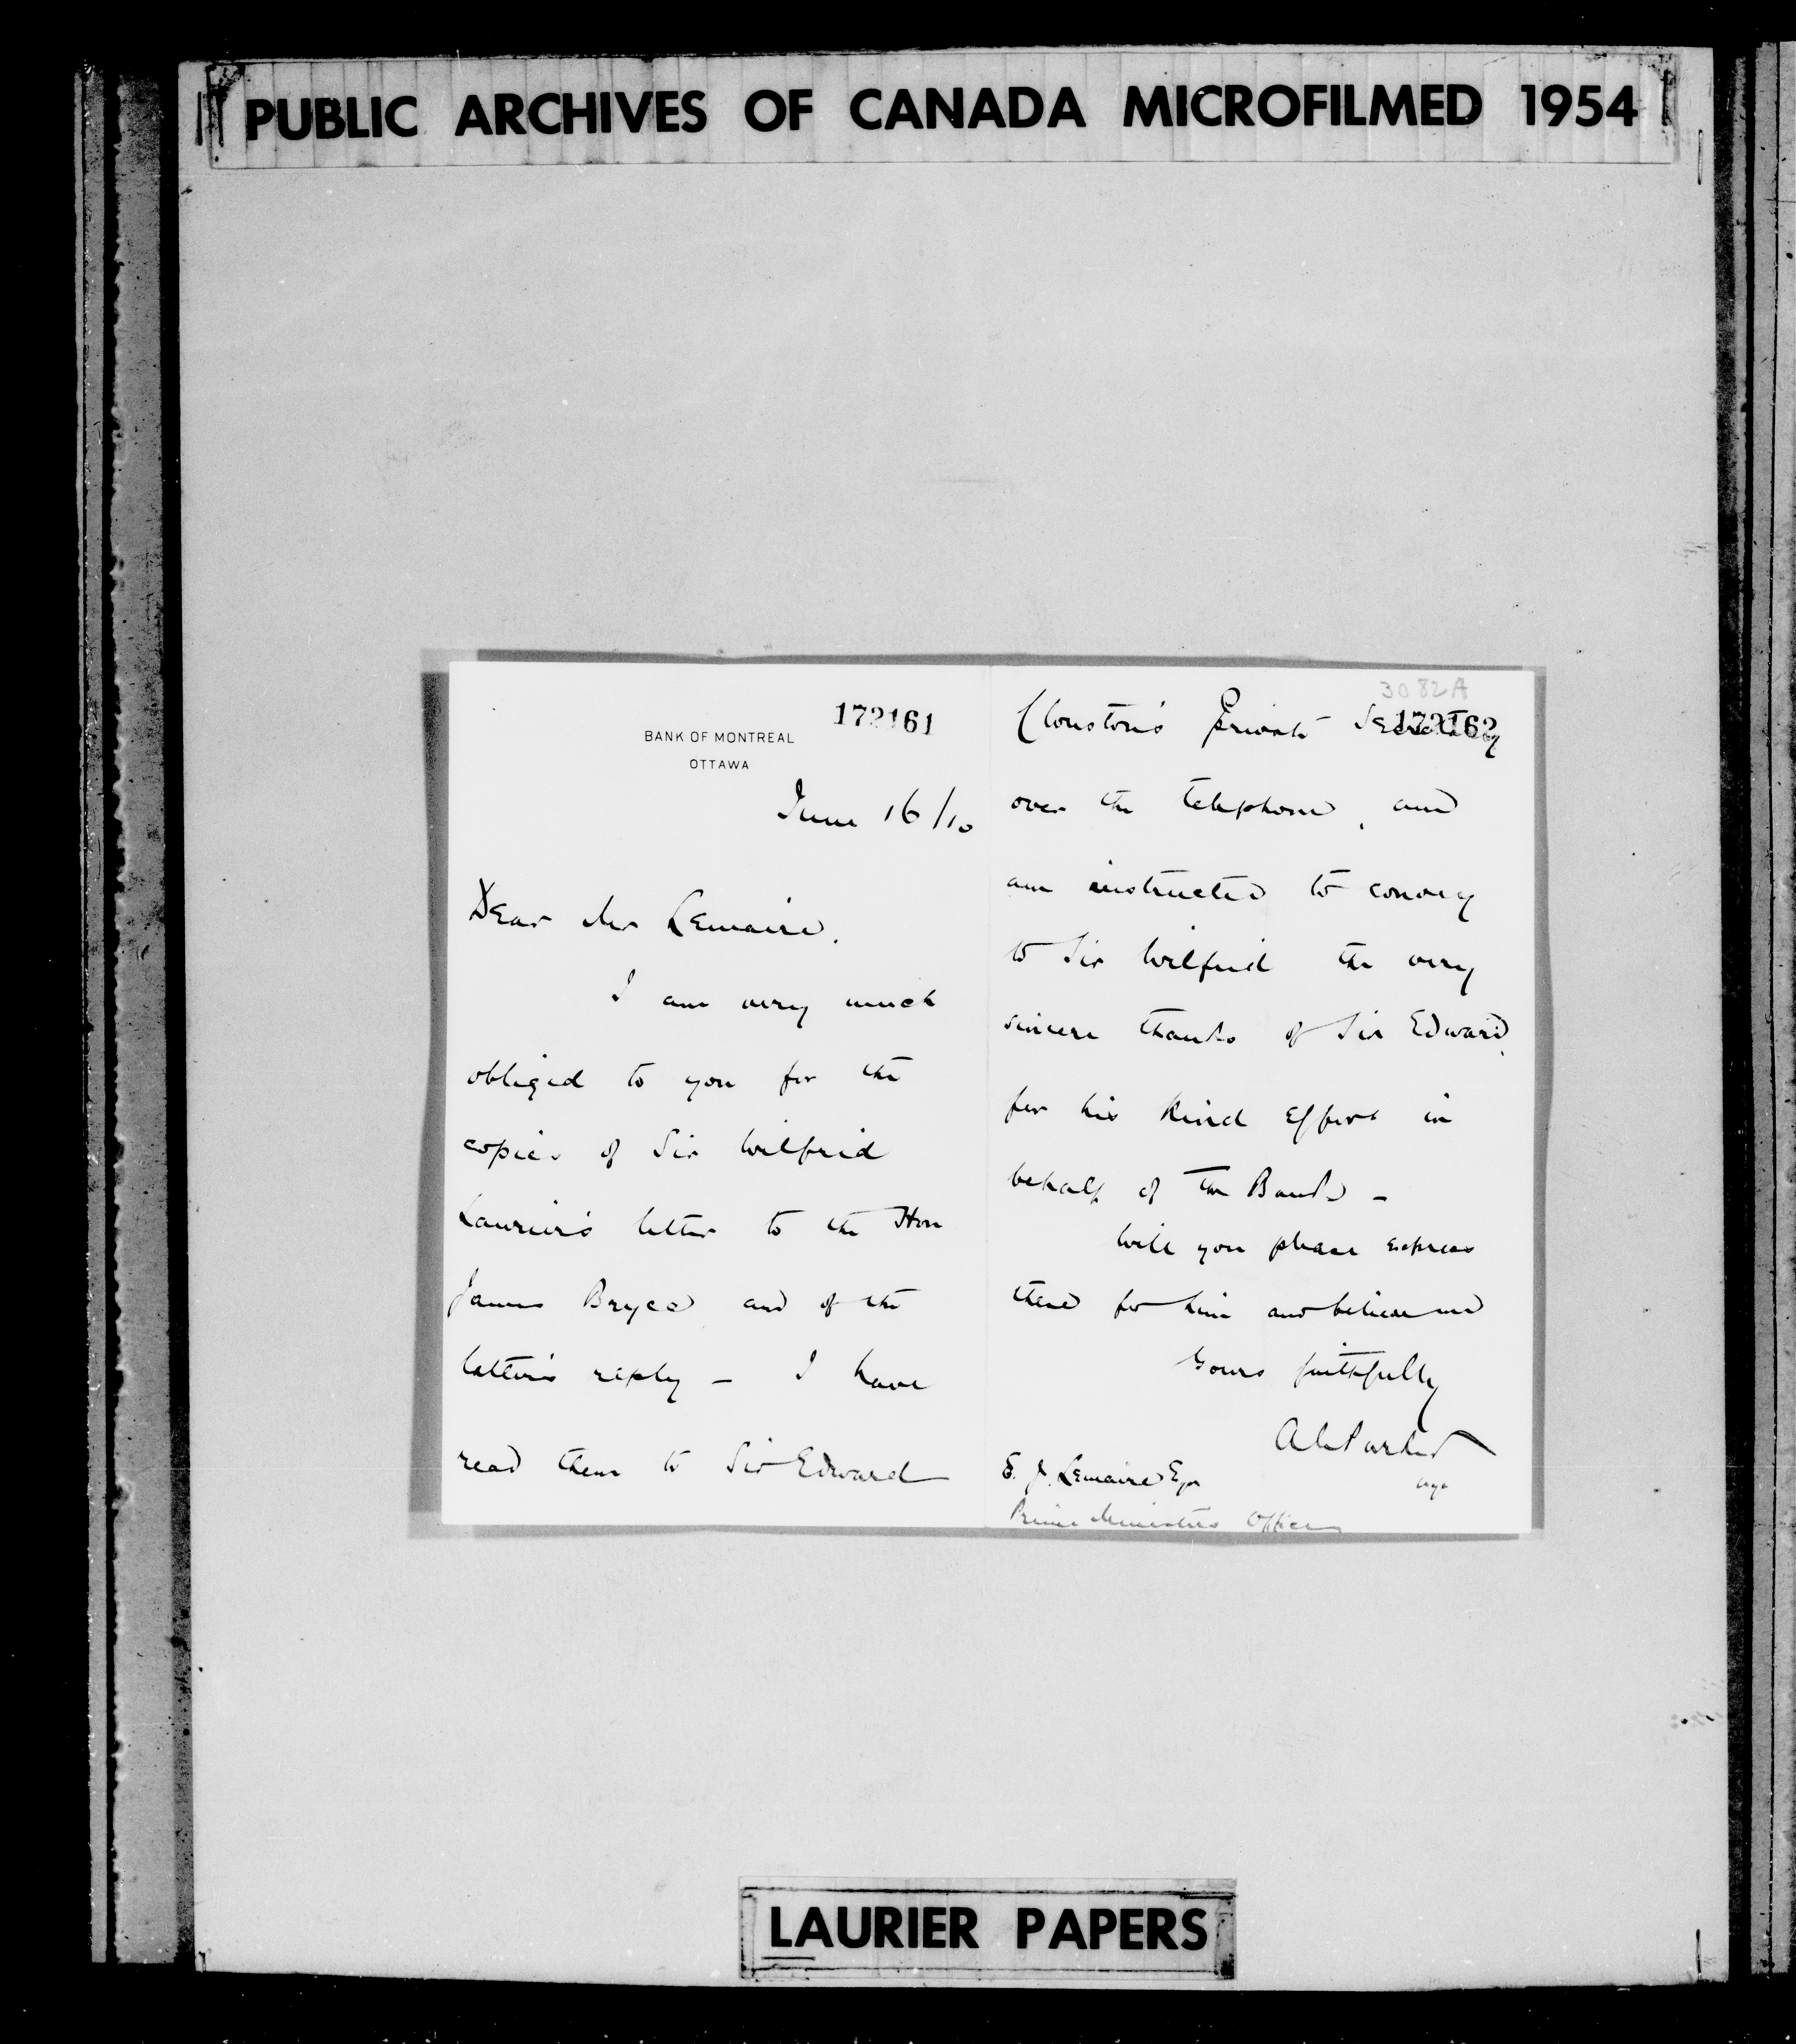 PUBLIC ARCHIVES OF CANADA MICROFILMED 1954
172161
BANK OF MONTREAL
OTTAWA
June 16/10
Dear Mr Lemaire,
I am very much
obliged to you for the
copies of Sir Wilfrid
Laurier's letter to the Hon
James Bryce and of the
latter's reply - I have
read them to Sir Edward
3082A
172162
Clouston's Private Secretary
over the telephone, and
am instructed to convey
to Sir Wilfrid the very
sincere thanks of Sir Edward,
for his kind effort in
behalf of the Bank -
Will you please express
these for him and believe me
Yours faithfully
E. J. Lemaire Esq
Prime Ministers Office
LAURIER PAPERS